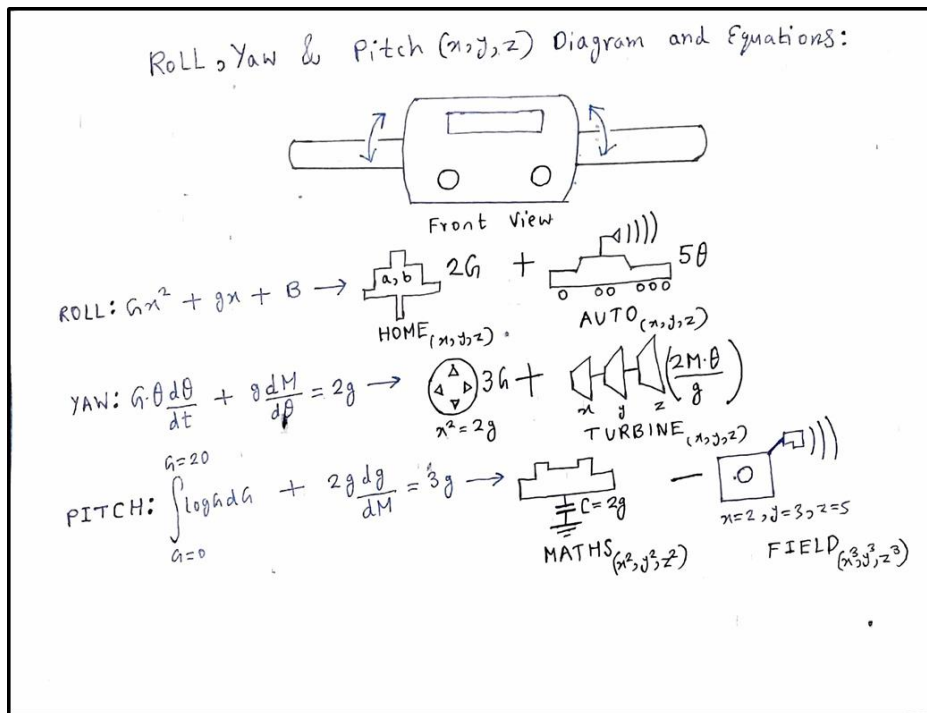 Roll, Yaw & Pitch (x,y,z) Diagram and Equations:
Front View
ROLL: Gx² + gx + B → a, b 2G + 5θ
HOME(x,y,z) . AUTO(x,y,z)
YAW: G·θ dθ/dt + g dM/dθ = 2g → 3G + (2M·θ/g)
x² = 2g x y z
TURBINE(x,y,z)
G=20
PITCH: ∫ log G dG + 2g dg/dM = 3g → C = 2g —
G=0
x=2, y=3, z=5
MATHS(x², y², z²) FIELD(x³, y³, z³)